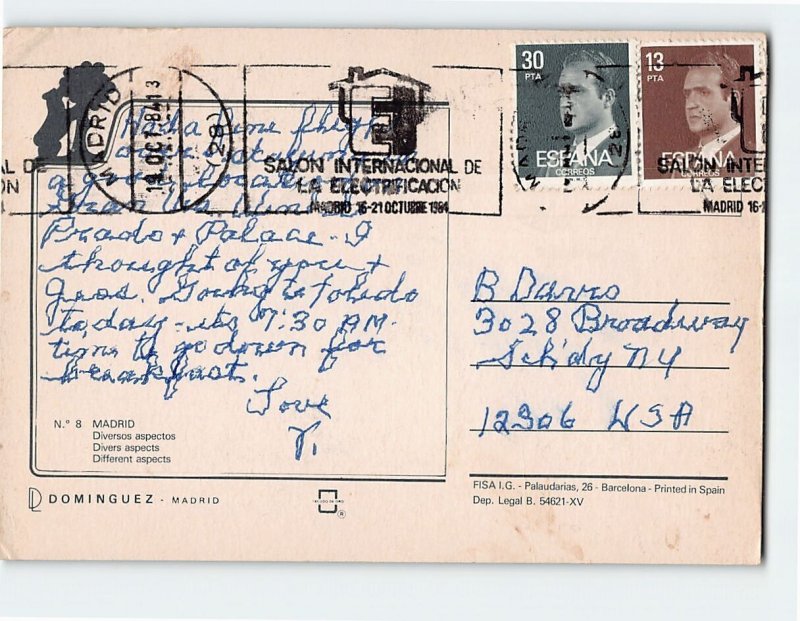 30
PTA
ESPAÑA
CORREOS
13
PTA
ESPAÑA
CORREOS
MADRID
19 OCT 84 13
(28)
SALON INTERNACIONAL DE
LA ELECTRIFICACION
MADRID 16-21 OCTUBRE 1984
SALON INTE
LA ELEC
MADRID 16-
AL DE
ON
Had a fine flight
a good
Prado + Palace. I
thought of you +
Going to Toledo
today - its 7:30 AM.
time to go down for
breakfast.
Love
V.
B Darro
3028 Broadway
Sch'dy NY
12306 USA
N.° 8 MADRID
Diversos aspectos
Divers aspects
Different aspects
DOMINGUEZ - MADRID
FISA I.G. - Palaudarias, 26 - Barcelona - Printed in Spain
Dep. Legal B. 54621-XV